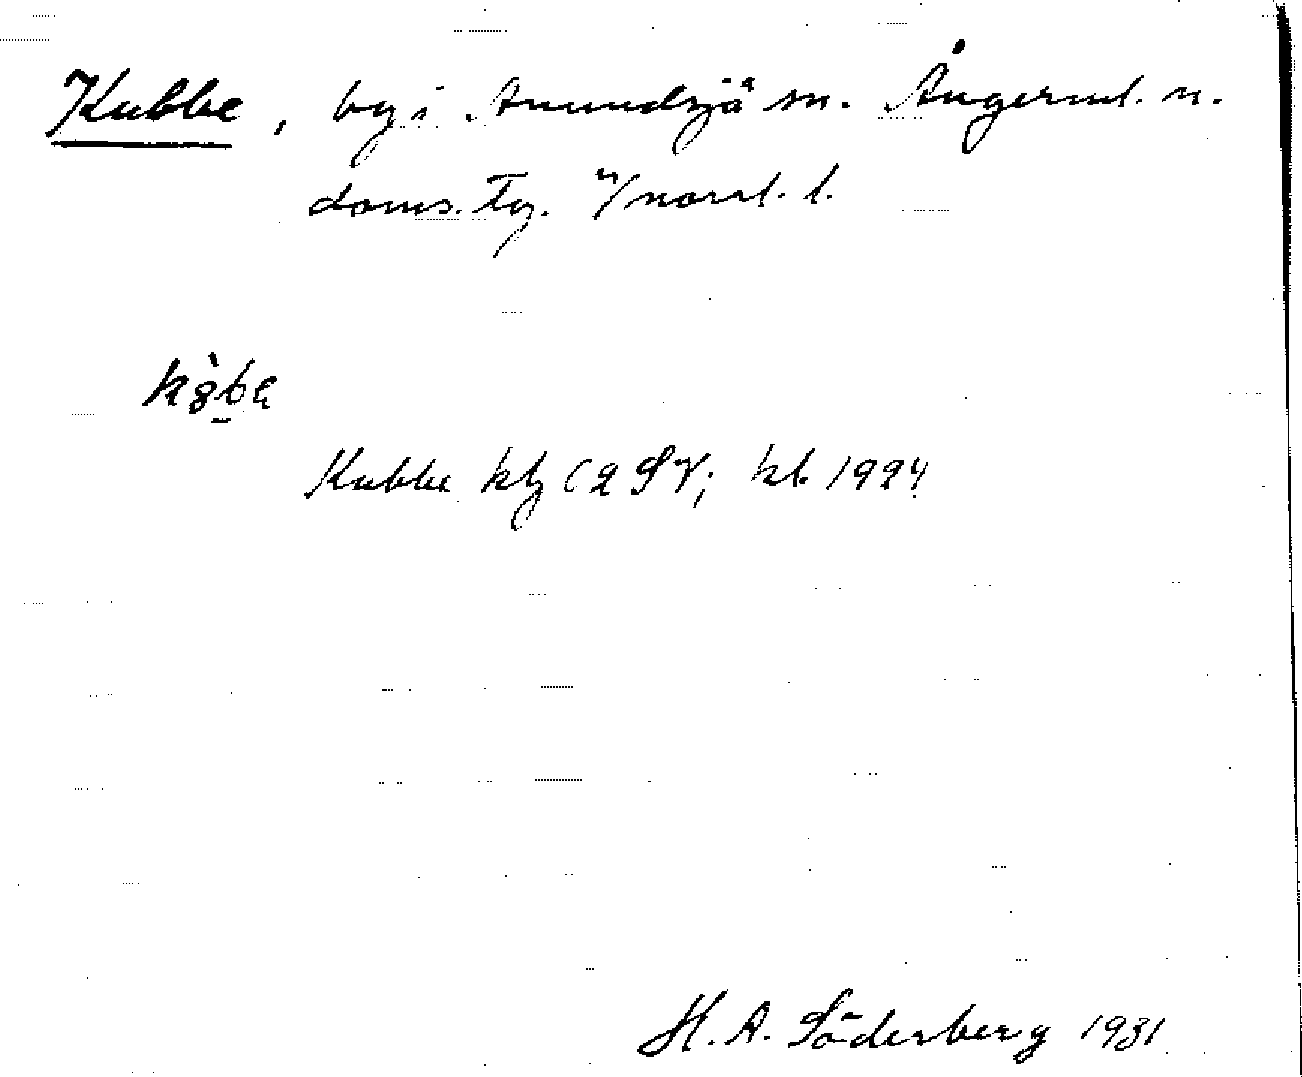 Kubbe, by i Anundsjö sn. Ångerml. n.
doms. Tg. V/norrl. l.
Kubbe kbg (2 SV; kb. 1924
H. A. Söderberg 1931